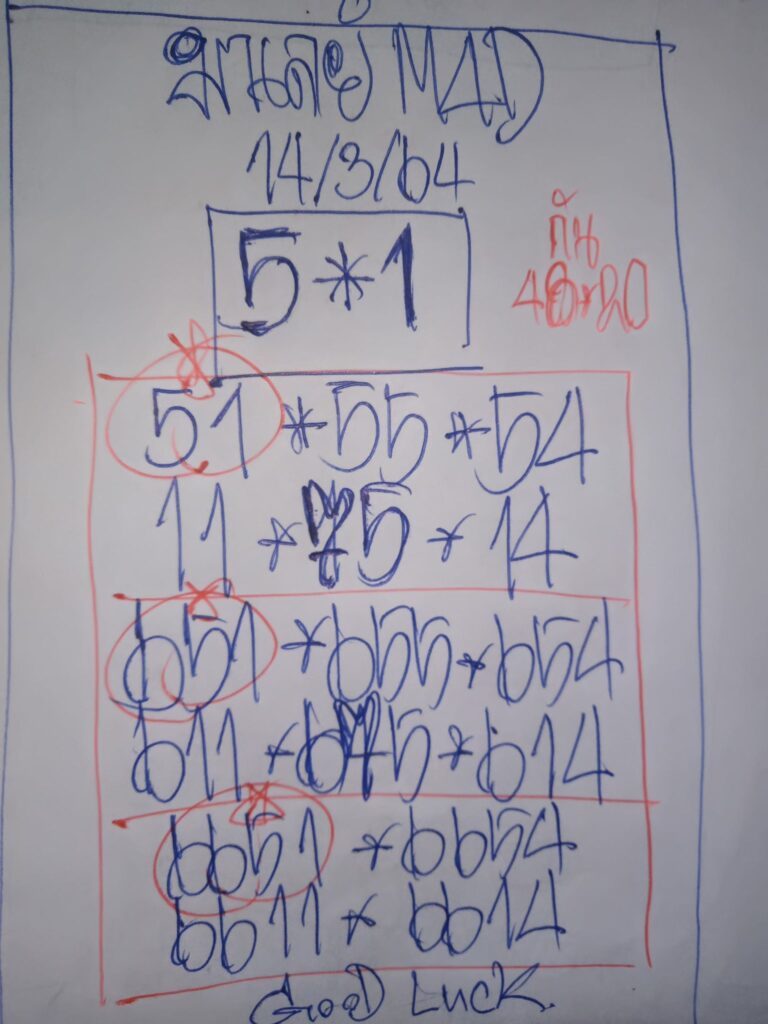 มาเลย MAD
14/3/64
5*1
กัน
48*20
51*55*54
11*75*14
651*655*654
611*675*614
6651*6654
6611*6614
GOOD LUCK.